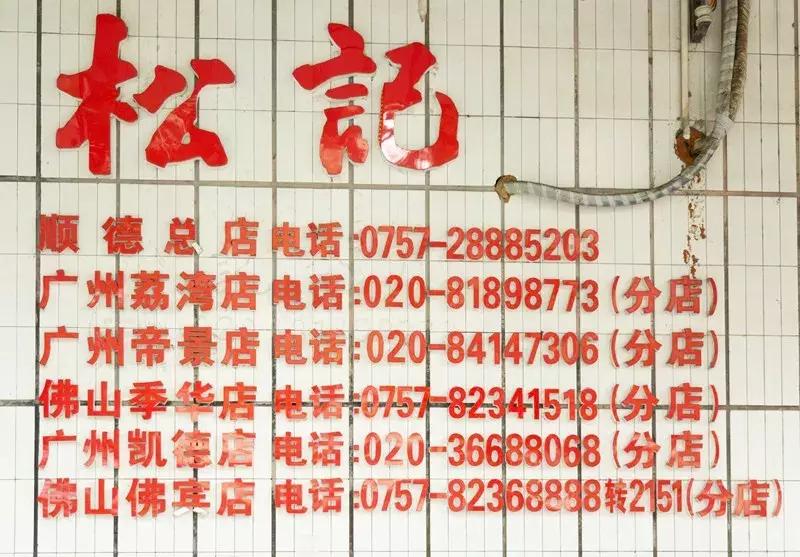 松記
顺德总店电话:0757-28885203
广州荔湾店电话:020-81898773(分店)
广州帝景店电话:020-84147306(分店)
佛山季华店电话:0757-82341518(分店)
广州凯德店电话:020-36688068(分店)
佛山佛宾店电话:0757-82368888转2151(分店)